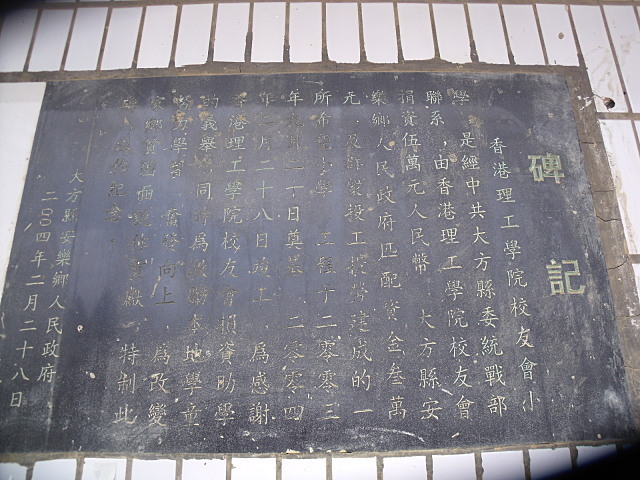 碑記
香港理工學院校友會小
學，是經中共大方縣委統戰部
聯系，由香港理工學院校友會
捐資伍萬元人民幣，大方縣安
樂鄉人民政府匹配資金叁萬
元，及群眾投工投勞建成的一
所希望小學。工程于二零零三
年 月二十日奠基，二零零四
年二月二十八日竣工，為感謝
香港理工學院校友會捐資助學
的義舉，同時為激勵本地學童
勤勞學習，奮發向上，為改變
家鄉貧困面貌作貢獻，特制此
碑，以為紀念。
大方縣安樂鄉人民政府
二00四年二月二十八日